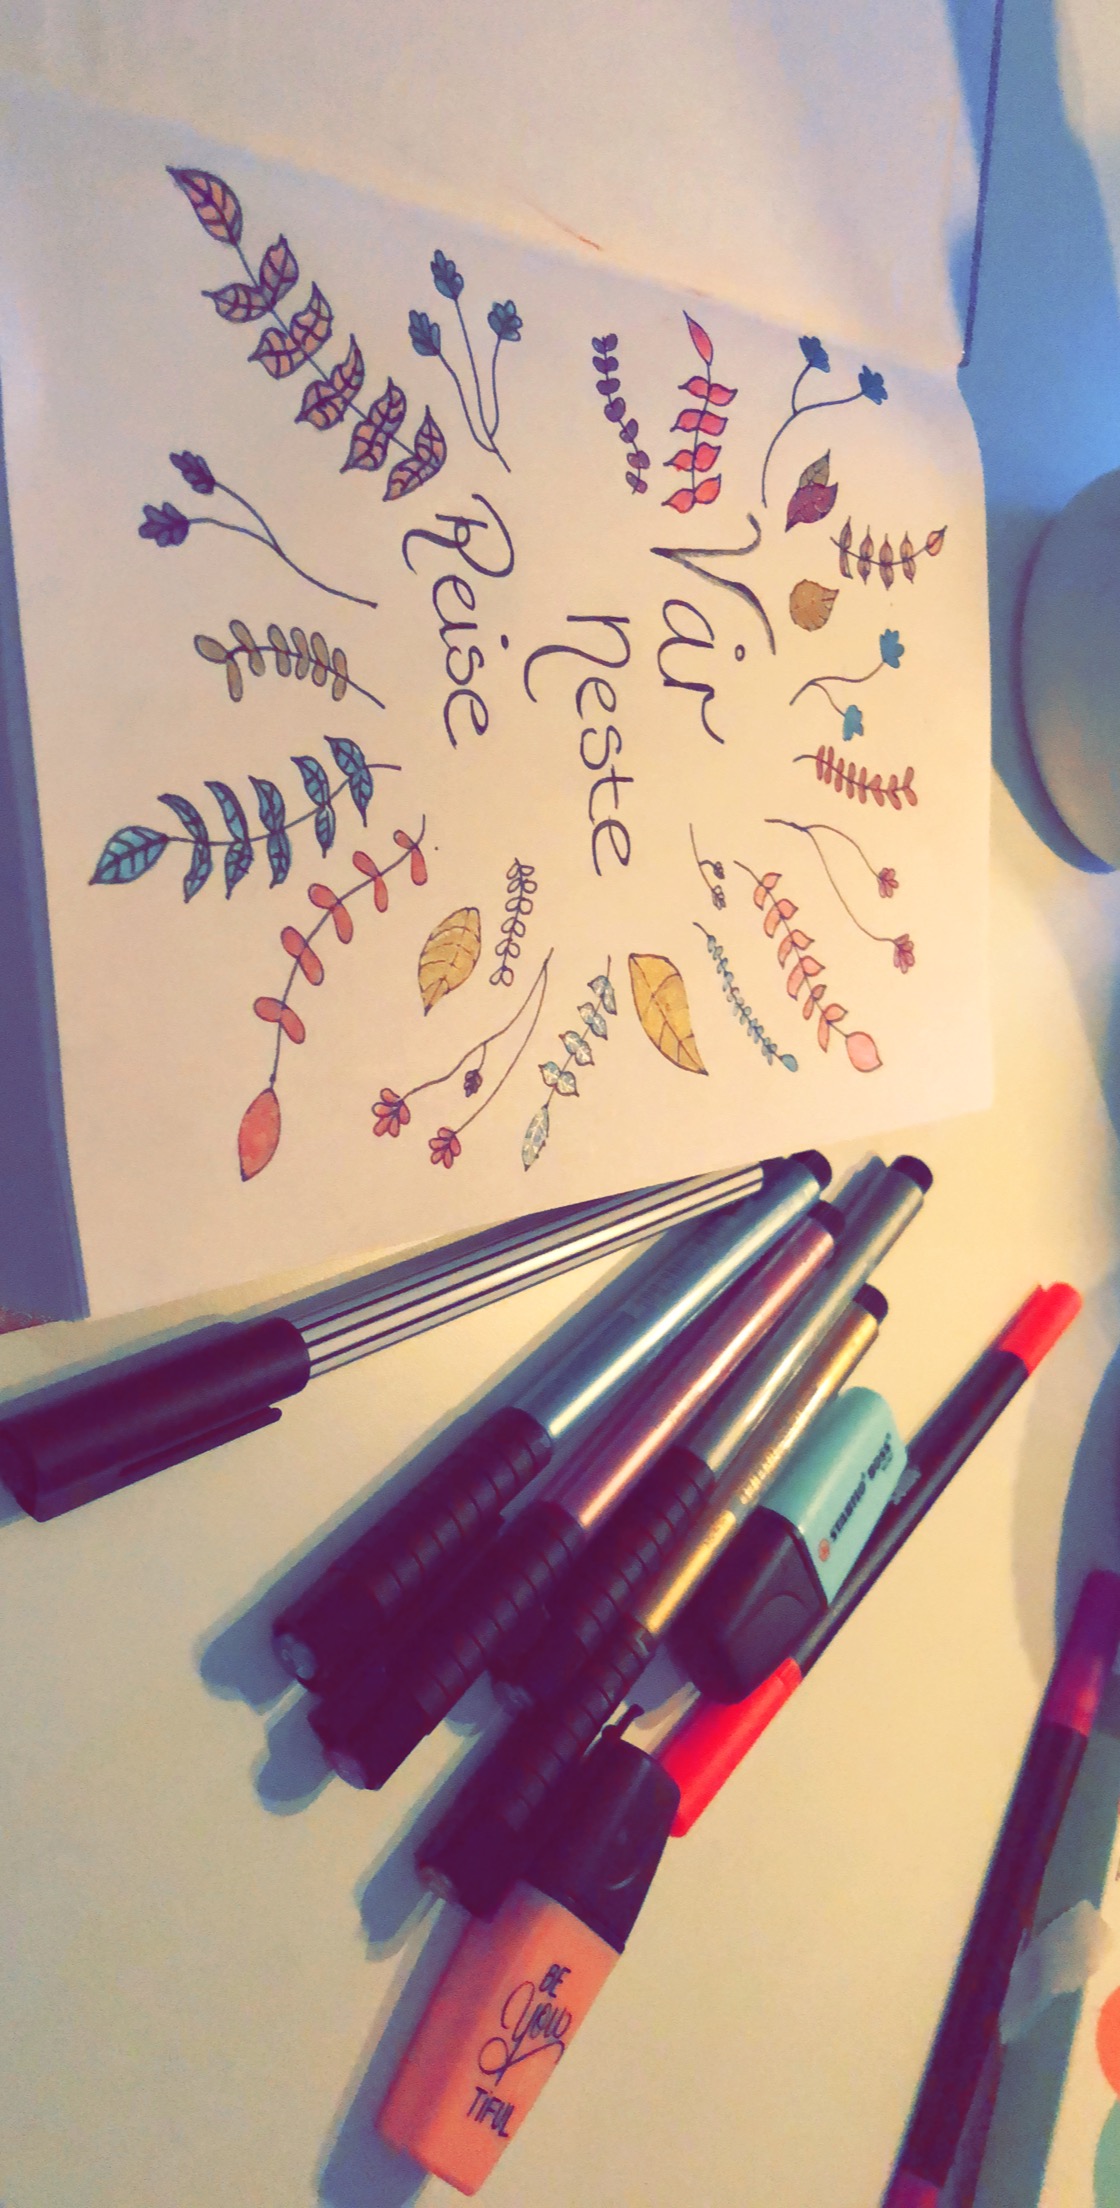 Vår
neste
Reise
STABILO BOSS
BE
You
TIFUL